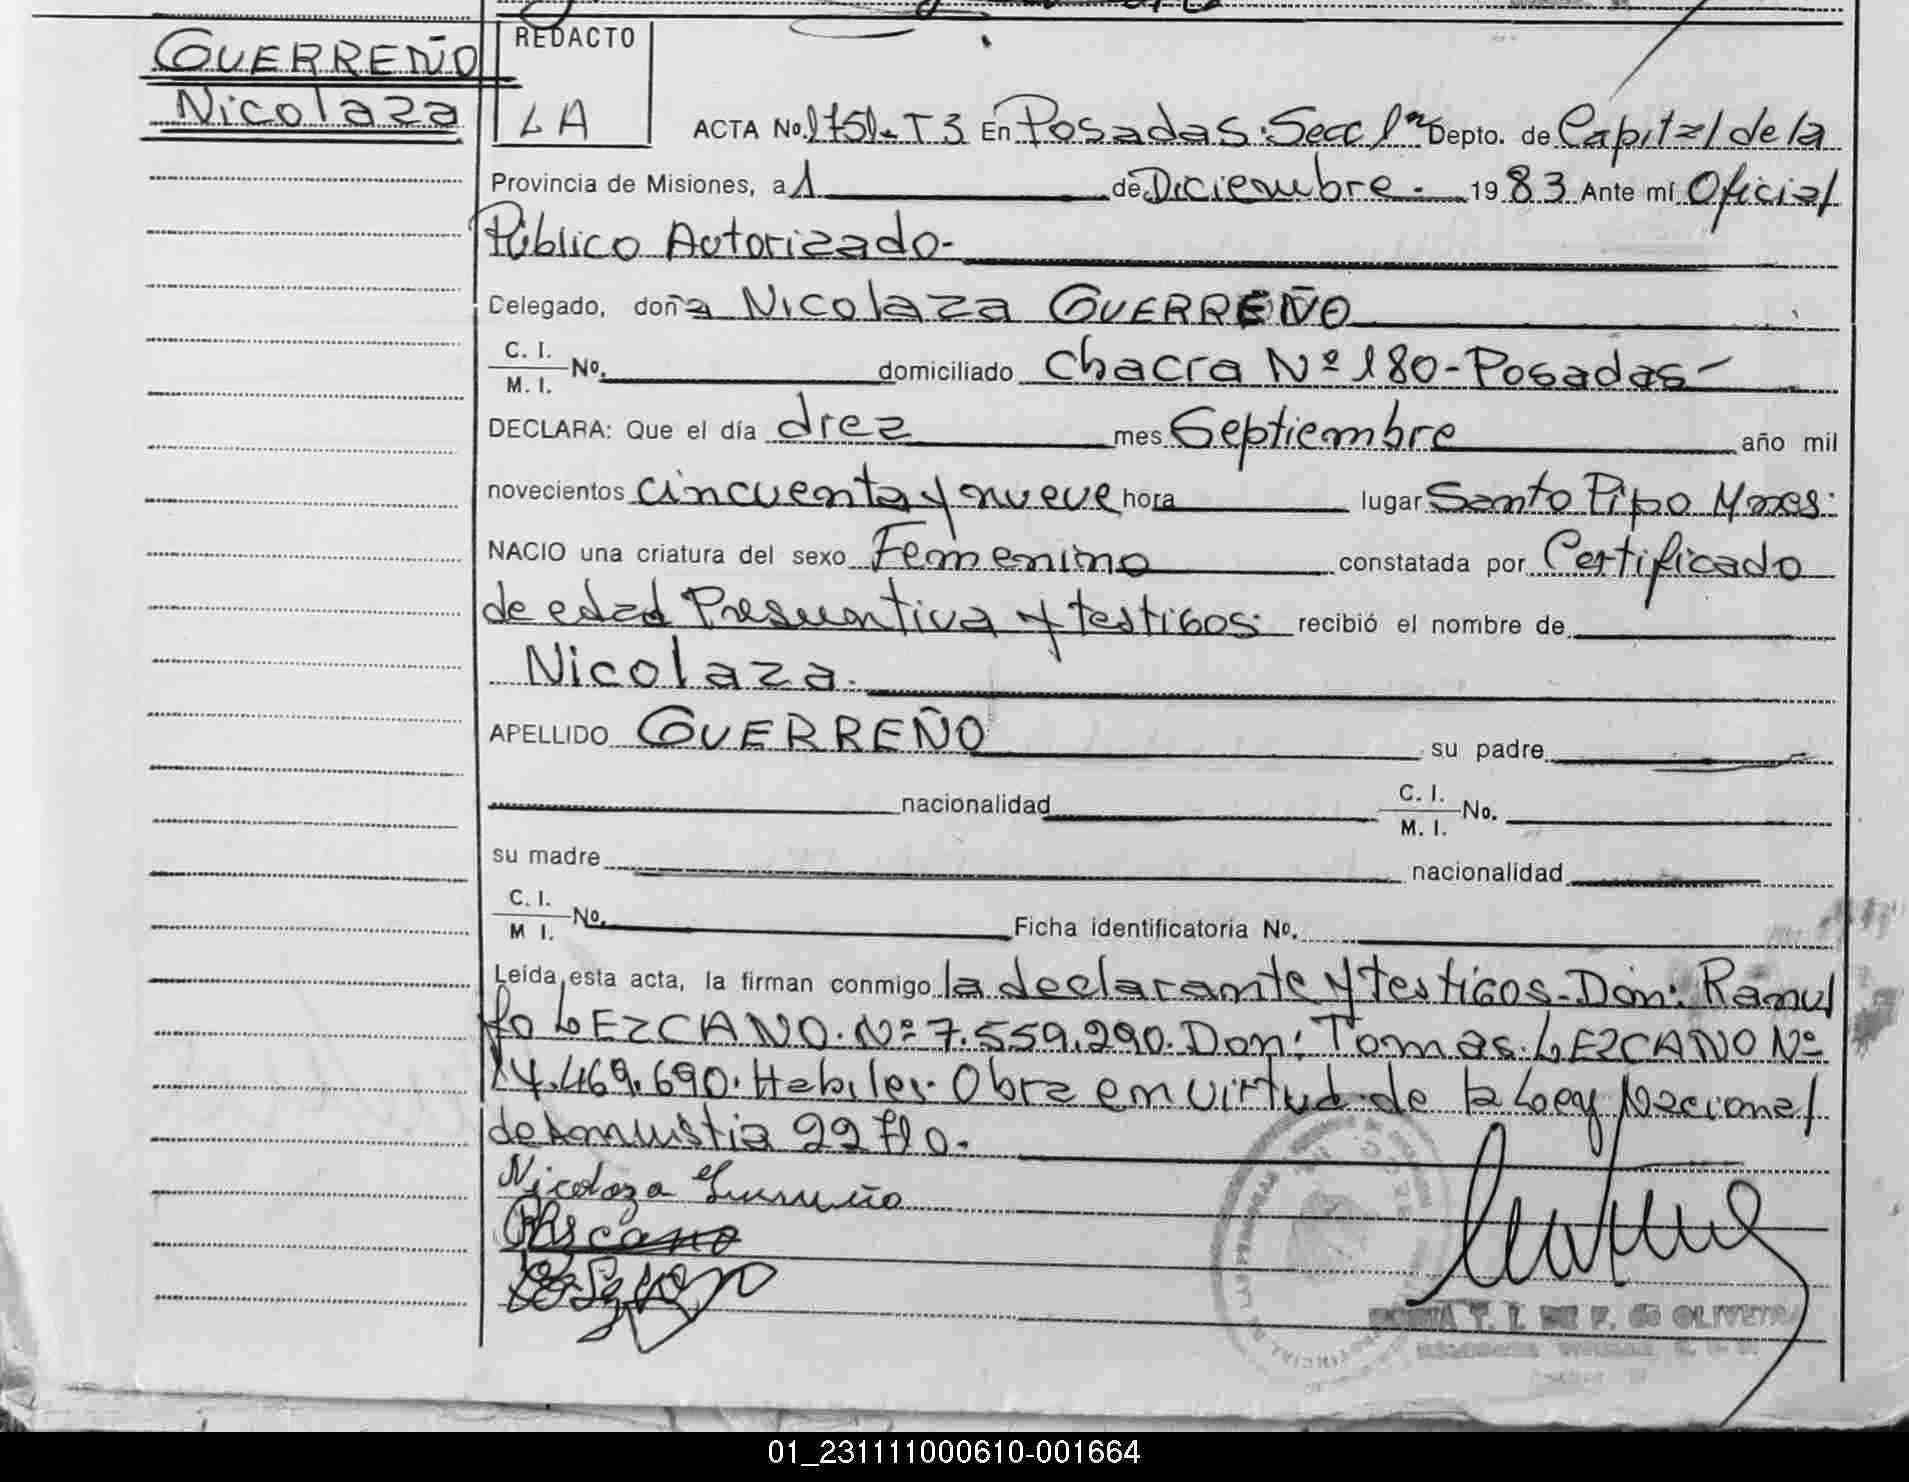 GUERREÑO
Nicolaza
REDACTO
LA
ACTA No. 1751-T3 En Posadas. Secc 1ra Depto. de Capital de la
Provincia de Misiones, a 1 de Diciembre. 1983 Ante mí Oficial
Público Autorizado-
Celegado, doña Nicolaza GUERREÑO
C. I.
M. I. No. domiciliado Chacra Nº 180-Posadas-
DECLARA: Que el día diez mes Septiembre año mil
novecientos cincuenta y nueve hora lugar Santo Pipo Mnes:
NACIO una criatura del sexo Femenino constatada por Certificado
de edad Presuntiva y testigos: recibió el nombre de
Nicolaza.
APELLIDO GUERREÑO su padre
nacionalidad C. I.
M. I. No.
su madre nacionalidad
C. I.
M I. No. Ficha identificatoria No.
Leída esta acta, la firman conmigo la declarante y testigos-Don: Ramul
fo LEZCANO. Nº 7.559.290. Don: Tomas. LEZCANO Nº
14.469.690. Habiles. Obra en virtud de la Ley Nacional
de Amnistia 22710.
Nicolaza Guerreño
T. I. DE F. de OLIVEIRA
01_231111000610-001664